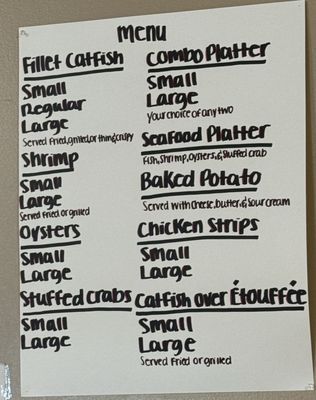 Menu
Fillet Catfish
Small
Regular
Large
Served Fried, grilled, or thin & crispy
Shrimp
Small
Large
Served Fried or grilled
Oysters
Small
Large
Stuffed Crabs
Small
Large
Combo Platter
Small
Large
Your choice of any two
Seafood Platter
Fish, Shrimp, Oysters, & Stuffed Crab
Baked Potato
Served with Cheese, butter, & Sour Cream
Chicken Strips
Small
Large
Catfish over Étouffée
Small
Large
Served Fried or grilled